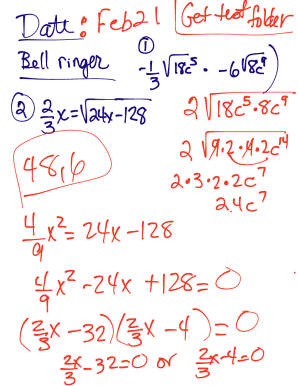 Date: Feb 21 Get test folder
Bell ringer
① -1/3 √18c⁵ · -6√8c⁹
② 2/3 x = √24x-128
2√18c⁵·8c⁹
2√9·2·4·2c¹⁴
2·3·2·2c⁷
24c⁷
48, 6
4/9 x² = 24x - 128
4/9 x² - 24x + 128 = 0
(2/3 x - 32)(2/3 x - 4) = 0
2x/3 - 32 = 0 or 2x/3 - 4 = 0